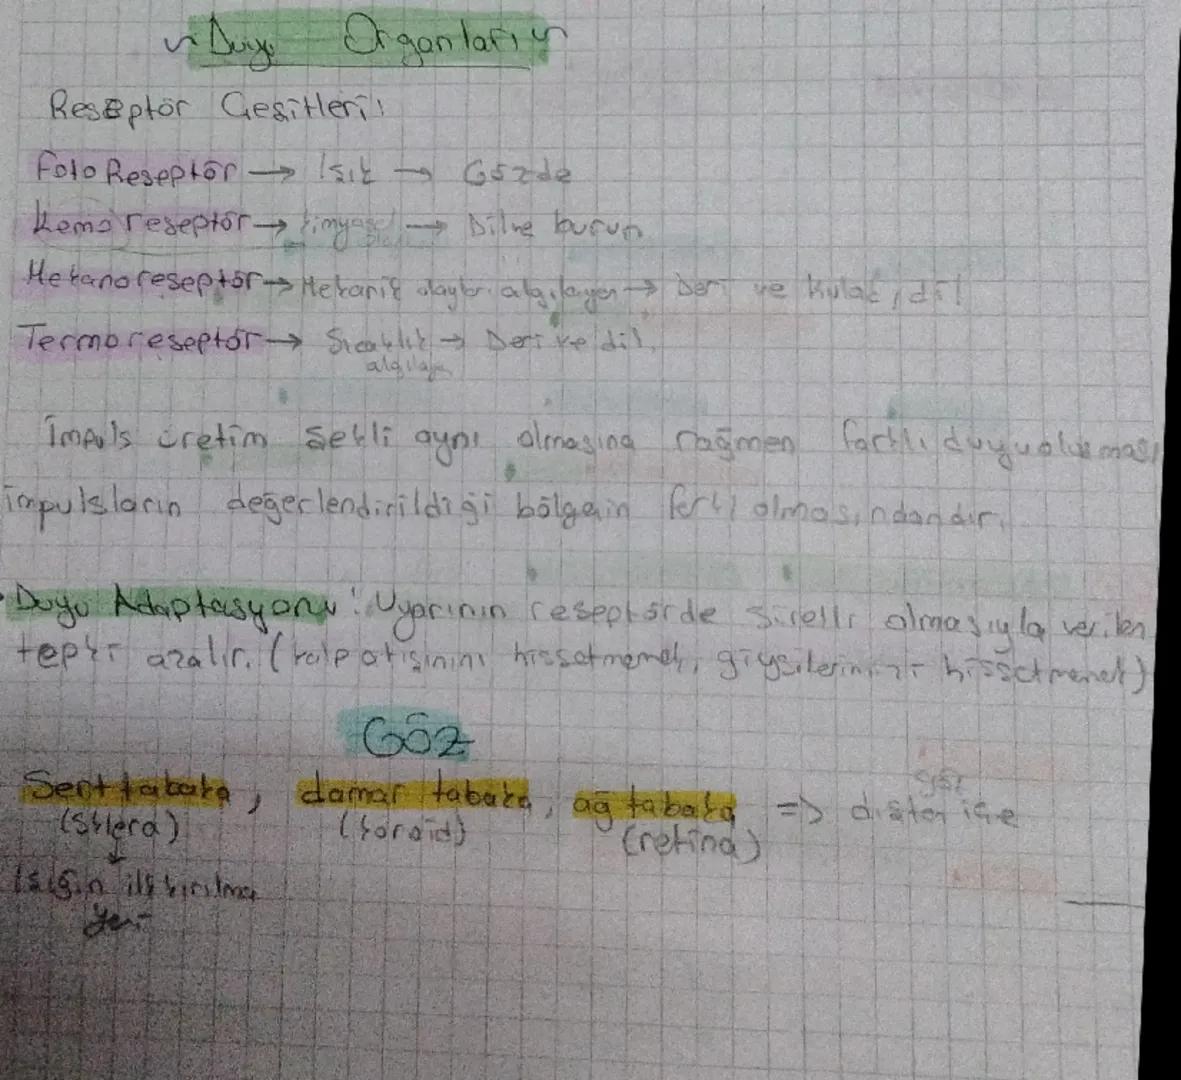 ~ Duyu Organları ~
Reseptör Çeşitleri:
Foto Reseptör → Işık → Gözde
Kemoreseptör → kimyasal → Dil ve burun
Mekanoreseptör → Mekanik olayları algılayan → Deri ve kulak, dil
Termoreseptör → Sıcaklık → Deri ve dil.
algılayan
İmpuls üretim şekli aynı olmasına rağmen farklı duyu oluşması
impulsların değerlendirildiği bölgenin farklı olmasındandır.
• Duyu Adaptasyonu: Uyarının reseptörde sürekli olmasıyla verilen
tepki azalır. (kalp atışının hissetmemek, giysilerimizi hissetmemek)
GÖZ
Sert tabaka, damar tabaka, ağ tabaka => dıştan içe
(Sklera) (koroid) (retina)
↓
Işığın ilk kırılma
yeri